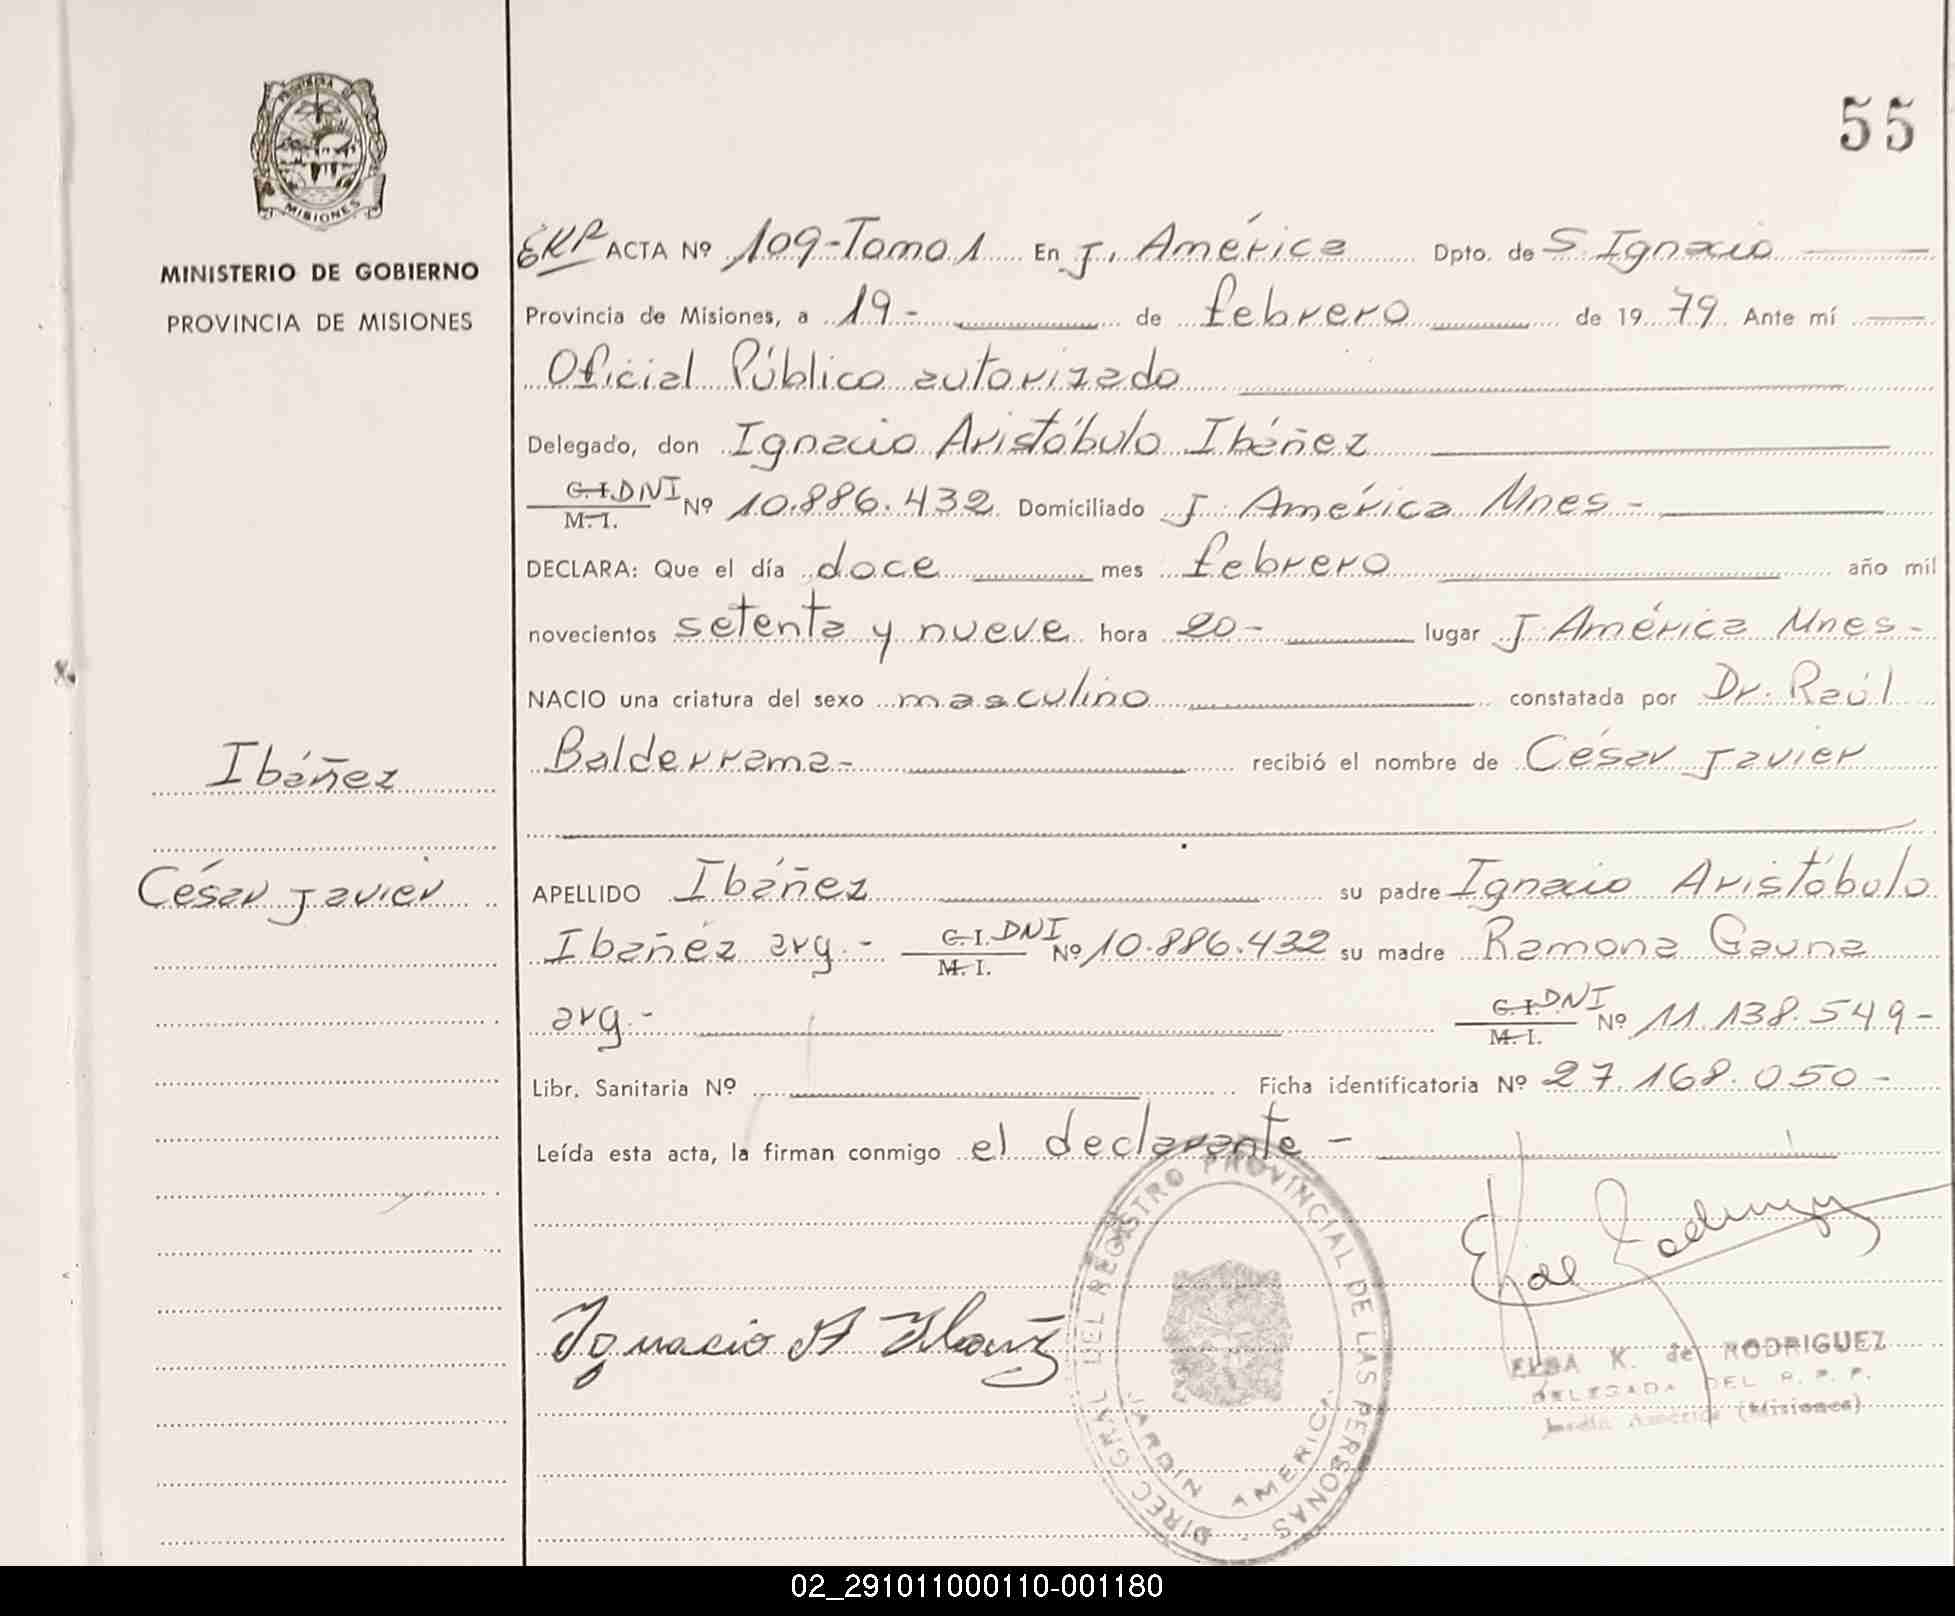 55
PROVINCIA DE
MISIONES
MINISTERIO DE GOBIERNO
PROVINCIA DE MISIONES
EKR ACTA Nº 109-Tomo 1 En J. América Dpto. de S. Ignacio
Provincia de Misiones, a 19- de febrero de 1979. Ante mí
Oficial Público autorizado
Delegado, don Ignacio Aristóbulo Ibáñez
C.I. DNI
M. I. Nº 10.886.432 Domiciliado J. América Mnes-
DECLARA: Que el día doce mes febrero año mil
novecientos setenta y nueve hora 20- lugar J. América Mnes-
NACIO una criatura del sexo masculino constatada por Dr. Raúl
Balderrama- recibió el nombre de César Javier
Ibáñez
César Javier
APELLIDO Ibáñez su padre Ignacio Aristóbulo
Ibañez arg.- C. I. DNI
M. I. Nº 10.886.432 su madre Ramona Gauna
arg.- C. I. DNI
M. I. Nº 11.138.549-
Libr. Sanitaria Nº Ficha identificatoria Nº 27.168.050-
Leída esta acta, la firman conmigo el declarante-
Ignacio A Ibañez
DIREC. GRAL. DEL REGISTRO PROVINCIAL DE LAS PERSONAS
JARDIN AMERICA
E K de Rodriguez
ELSA K. de RODRIGUEZ
DELEGADA DEL R. P. P.
Jardín América (Misiones)
02_291011000110-001180